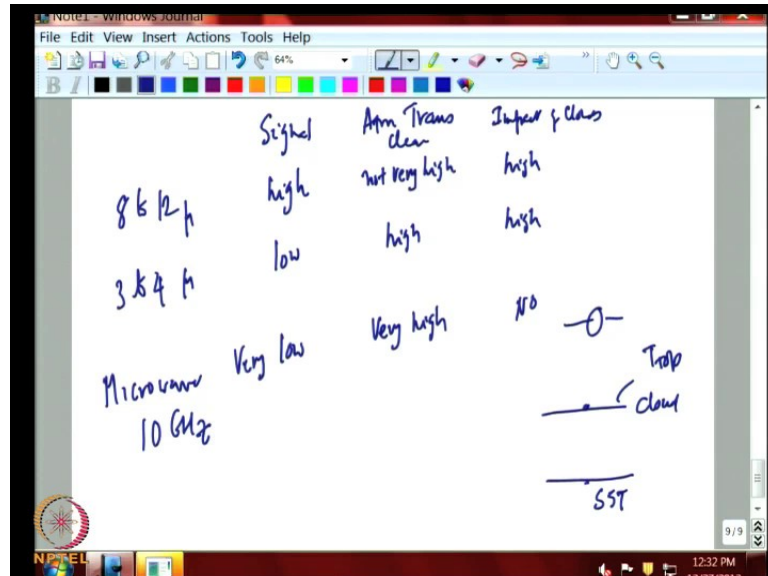 Note1 - Windows Journal
File Edit View Insert Actions Tools Help
64%
B I
Signal Atm Trans clear Impact of Clouds
8 to 12 μ high not very high high
3 to 4 μ low high high
Microwave very low very high NO
10 GHz
Trop
cloud
SST
9/9
NPTEL
12:32 PM